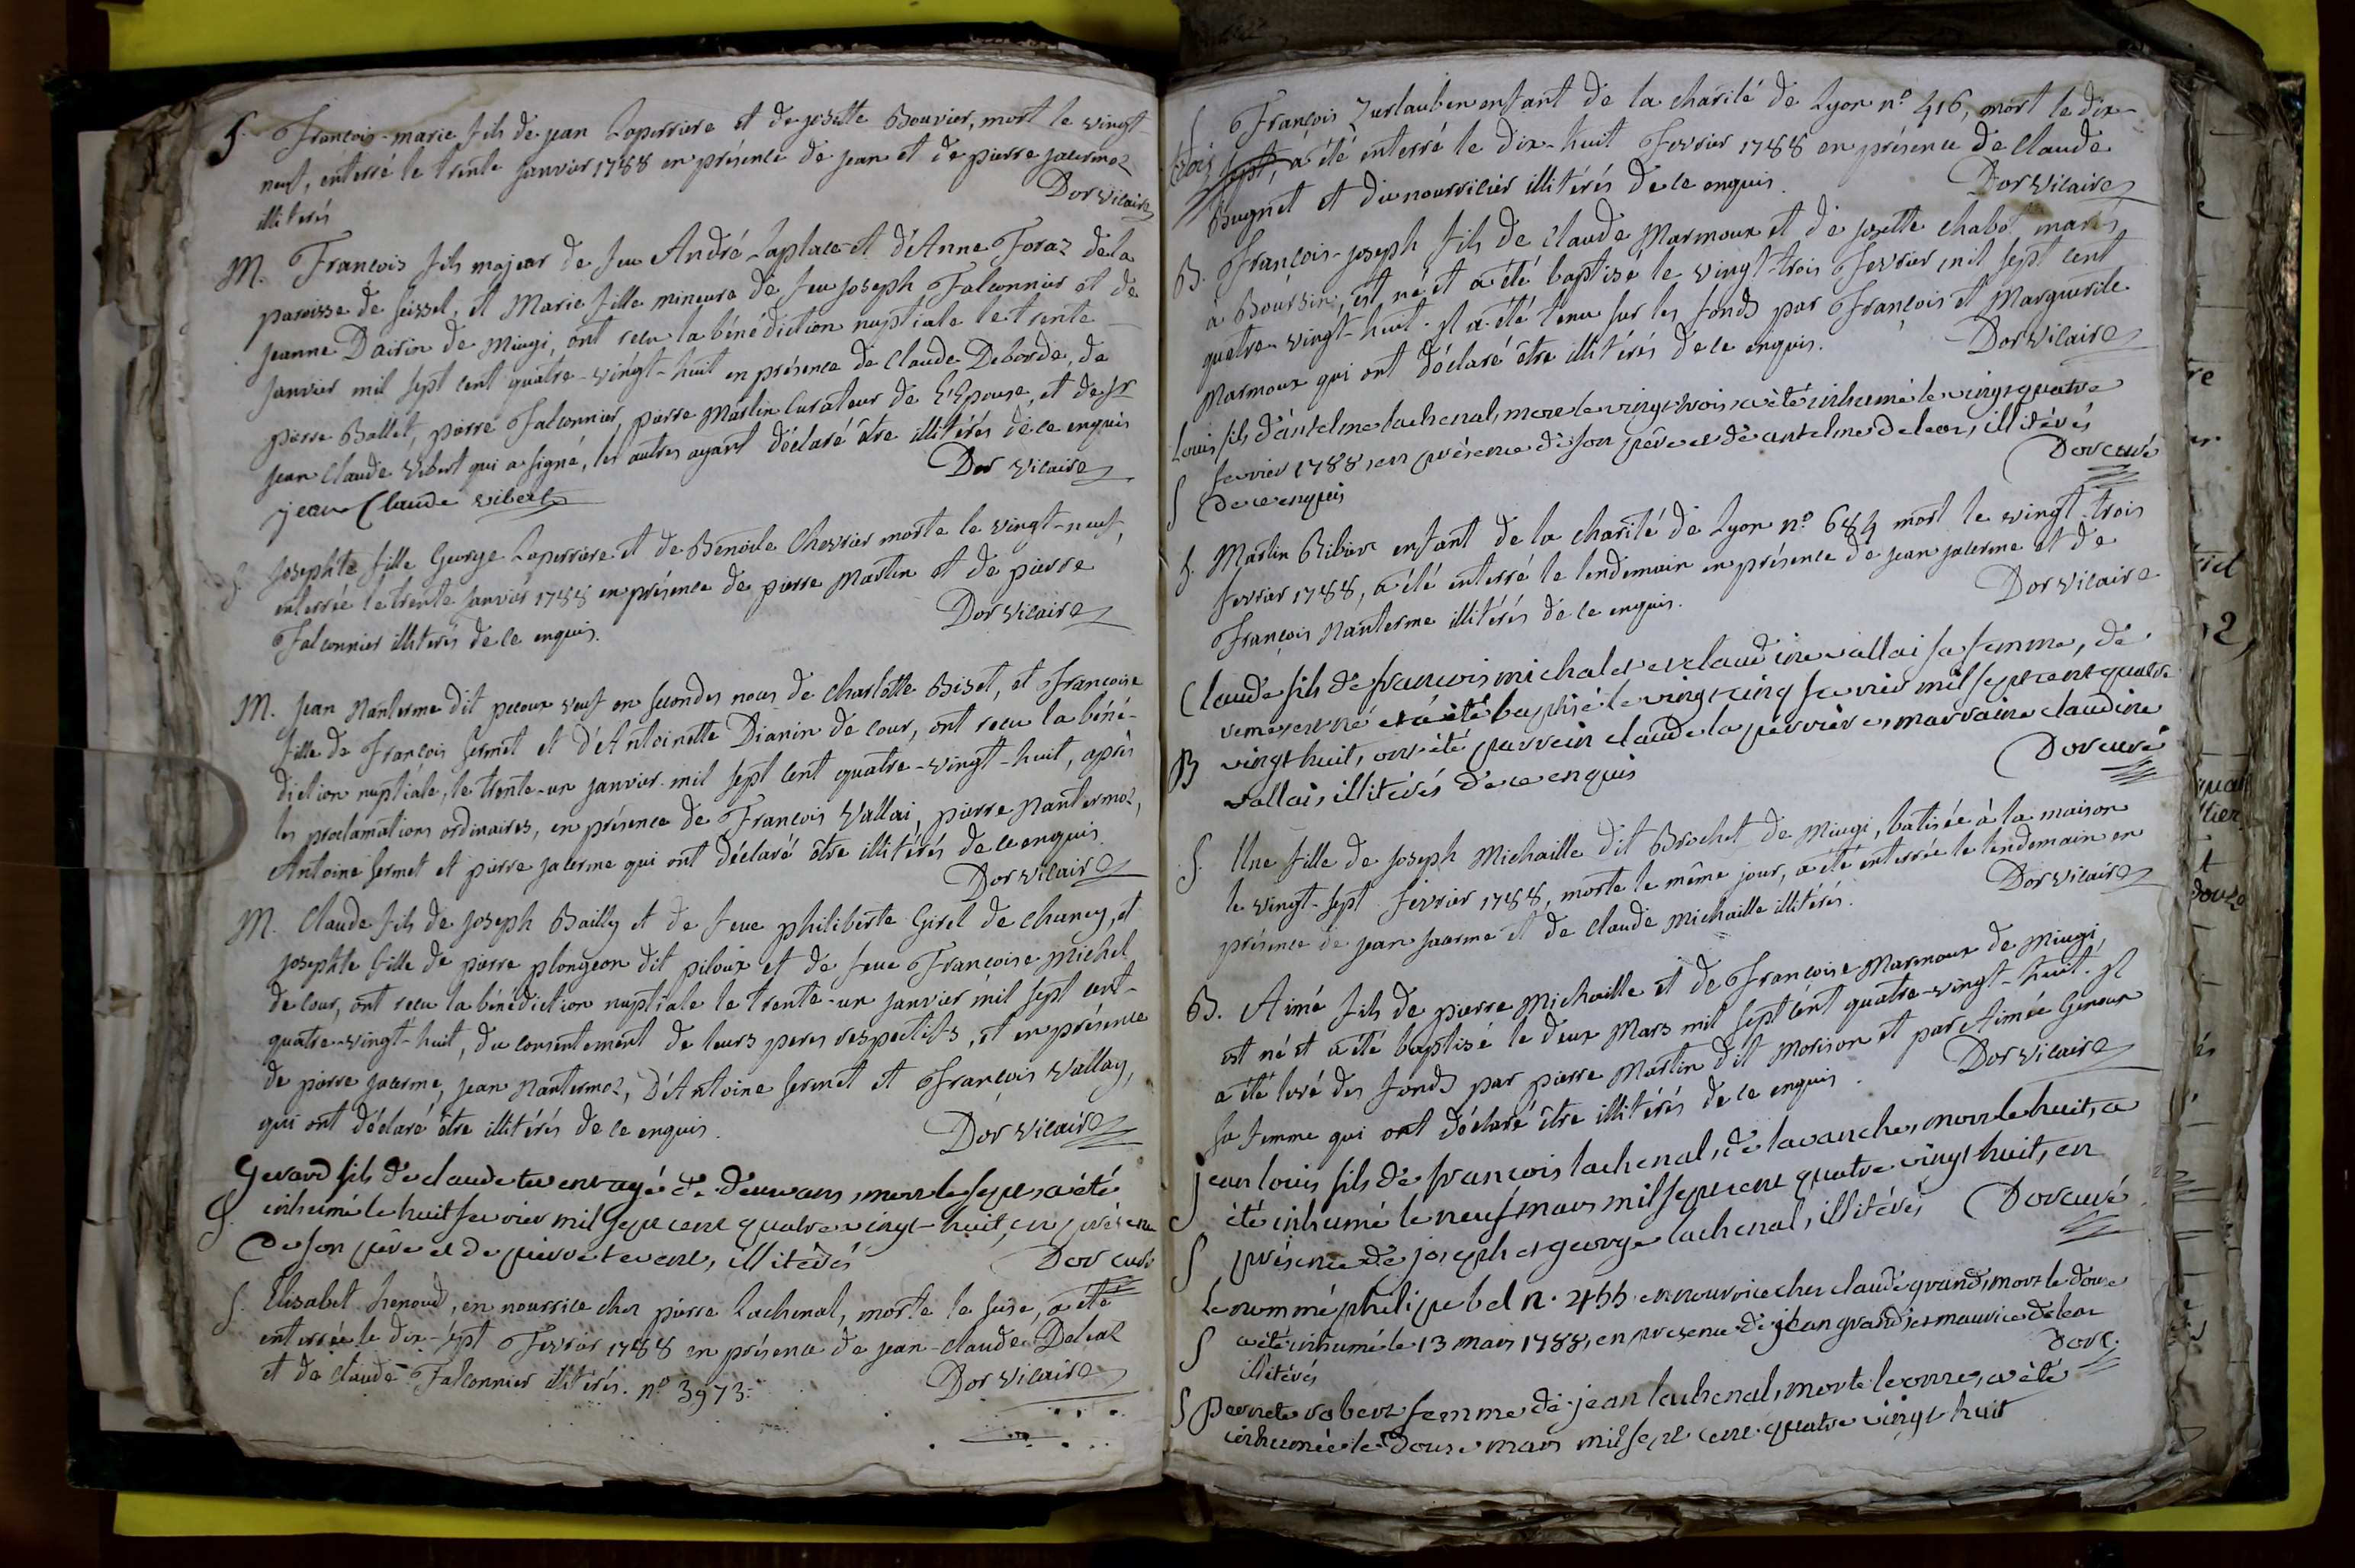 S. François-marie fils de jean Laperriere et de josette Bouvier, mort le vingt-
neuf, enterré le trente janvier 1788 en présence de jean et de pierre jacermoz
illiterés
Dor Vicaire
M. François fils majeur de feu André Laplace et d'Anne Foraz de la
paroisse de seissel, et Marie fille mineure de feu joseph Falconnier et de
jeanne Dairin de Mingi, ont recu la bénédiction nuptiale le trente
janvier mil sept cent quatre-vingt-huit en présence de Claude Deborde, de
pierre Ballet, pierre Falconnier, pierre Martin Curateur de l'Epouse, et de sr
jean Claude Vibert qui a signé, les autres ayant déclaré être illitérés de ce enquis
Dor Vicaire
jean Claude vibert
S. josephte fille George Laperriere et de Benoite Chevrier morte le vingt-neuf,
enterrée le trente janvier 1788 en présence de pierre Martin et de pierre
Falconnier illiterés de ce enquis.
Dor Vicaire
M. jean Nanterme dit pecoux veuf en secondes noces de Charlotte Biset, et Françoise
fille de François sermet et d'Antoinette Dianin de cour, ont recu la béné-
diction nuptiale, le trente-un janvier mil sept cent quatre-vingt-huit, après
les proclamations ordinaires, en présence de François Vallai, pierre Nantermoz,
Antoine sermet et pierre jacerme qui ont déclaré être illitérés de ce enquis.
Dor Vicaire
M. Claude fils de joseph Bailly et de feue philiberte Girel de Chanay, et
josephte fille de pierre plongeon dit piloux et de feue Françoise Michel
de cour, ont recu la bénédiction nuptiale le trente-un janvier mil sept cent-
quatre-vingt-huit, du consentement de leurs peres respectifs, et en présence
de pierre jacerme, jean Nantermoz, D'Antoine sermet et François Vallay,
qui ont déclaré être illitérés de ce enquis.
Dor Vicaire
Gerard fils de claude agé de deux ans, mort le sept, a été
S. inhumé le huit fevrier mil sept cent quatre vingt-huit, en présence
de son père et de pierre, illitérés
Dor curé
S. Elisabet henoud, en nourrice chez pierre Lachenal, morte le seise, a été
enterrée le dix-sept Fevrier 1788 en présence de jean-claude Deleaz
et de claude Falconnier illiterés. n° 3973.
Dor Vicaire
S François Zurlauben enfant de la charité de Lyon n° 416, mort le dix-
sept, a été enterré le dix-huit Fevrier 1788 en présence de Claude
Bugnet et du nourricier illitérés de ce enquis.
Dor Vicaire
B. François-joseph fils de Claude Marmoux et de josette chabot mariés
à Boursin, est né et a été baptisé le vingt-trois Fevrier mil sept cent
quatre vingt-huit. Il a été tenu sur les fonds par François et Marguerite
Marmoux qui ont déclaré être illitérés de ce enquis.
Dor Vicaire
Louis fils d'antelme lachenal, mort le vingt trois a été inhumé le vingt quatre
fevrier 1788, en présence de son père et de antelme deleaz, illitérés
S de ce enquis
Dor curé
S. Martin Ribion enfant de la charité de Lyon n° 684 mort le vingt-trois
fevrier 1788, a été enterré le lendemain en présence de jean jacerme et de
François Nanterme illitérés de ce enquis.
Dor Vicaire
Claude fils de francois michalet et claudine vallai sa femme, de
est né et a été baptisé le vingt cinq fevrier mil sept cent quatre
B vingt huit, ont été parrein claude laperrière, marraine claudine
vallai, illitérés de ce enquis
Dor curé
S. Une fille de joseph Michaille dit Brochet de Mingi, batisée à la maison
le vingt-sept Fevrier 1788, morte le même jour, a été enterrée le lendemain en
présence de jean jacerme et de claude Michaille illitérés.
Dor Vicaire
B. Aimé fils de pierre Michaille et de Françoise Marmoux de Mingi,
est né et a été baptisé le deux Mars mil sept cent quatre-vingt-huit. Il
a été levé des fonds par pierre Martin dit Morison et par Aimée Genoux
sa femme qui ont déclaré être illitérés de ce enquis.
Dor Vicaire
jean louis fils de francois lachenal, de lavanche, mort le huit, a
été inhumé le neuf mars mil sept cent quatre vingt huit, en
S présence de joseph et george lachenal, illitérés
Dor curé
Le nommé philipe bel n. 455 en nourrice chez claude grand, mort le douse
S a été inhumé le 13 mars 1788, en presence de jean grand, et maurice deleaz
illitérés
Dor c.
S Pernete robert femme de jean lachenal, morte le onze, a été
inhumée le douse mars mil sept cent quatre vingt huit